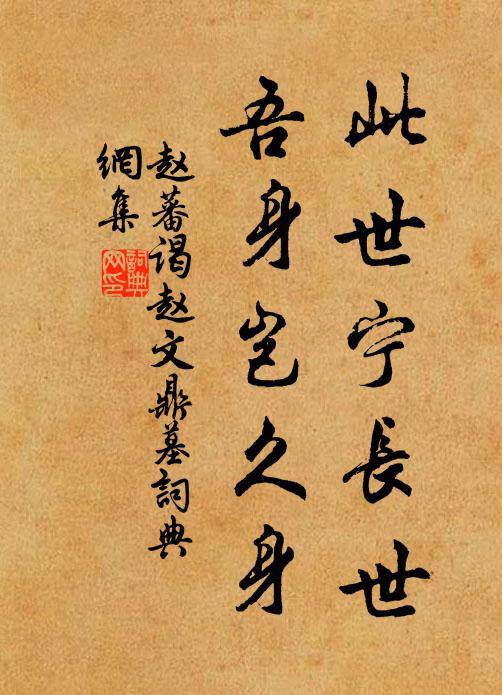 此世宁長世
吾身岂久身
赵蕃谒赵文鼎墓詞典
網集
詞典
网印